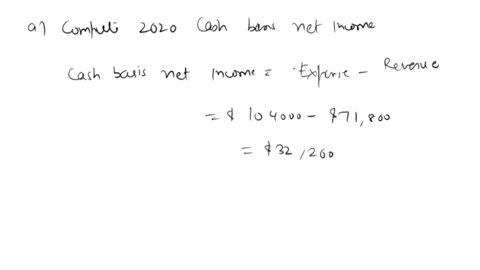 a) Compute 2020 Cash basis net income
Cash basis net income = Expense - Revenue
= $ 104000 - $71,800
= $32,200